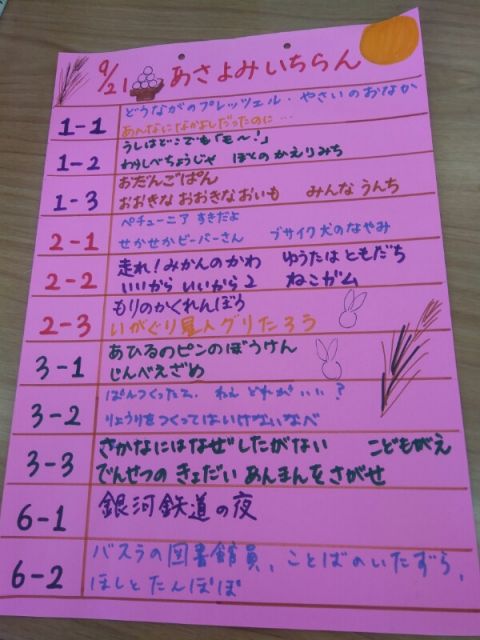 9/21 あさよみいちらん
1-1 どうながのプレッツェル・やさいのおなか
あんなになかよしだったのに…
1-2 うしはどこでも「モ～!」
わらしべちょうじゃ ぼとのかえりみち
1-3 おだんごぱん
おおきな おおきな おいも みんなうんち
2-1 ペチューニア すきだよ
せかせかビーバーさん ブサイク犬のなやみ
2-2 走れ!みかんのかわ ゆうたはともだち
いいから いいから2 ねこガム
2-3 もりのかくれんぼう
いがぐり星人グリたろう
3-1 あひるのピンのぼうけん
じんべえざめ
3-2 ぱんつくったよ。 ねえ どれがいい?
りょうりをつくってはいけないなべ
3-3 さかなにはなぜしたがない こどもがえ
でんせつのきょだいあんまんをさがせ
6-1 銀河鉄道の夜
6-2 バスラの図書館員、ことばのいたずら、
ほしとたんぽぽ